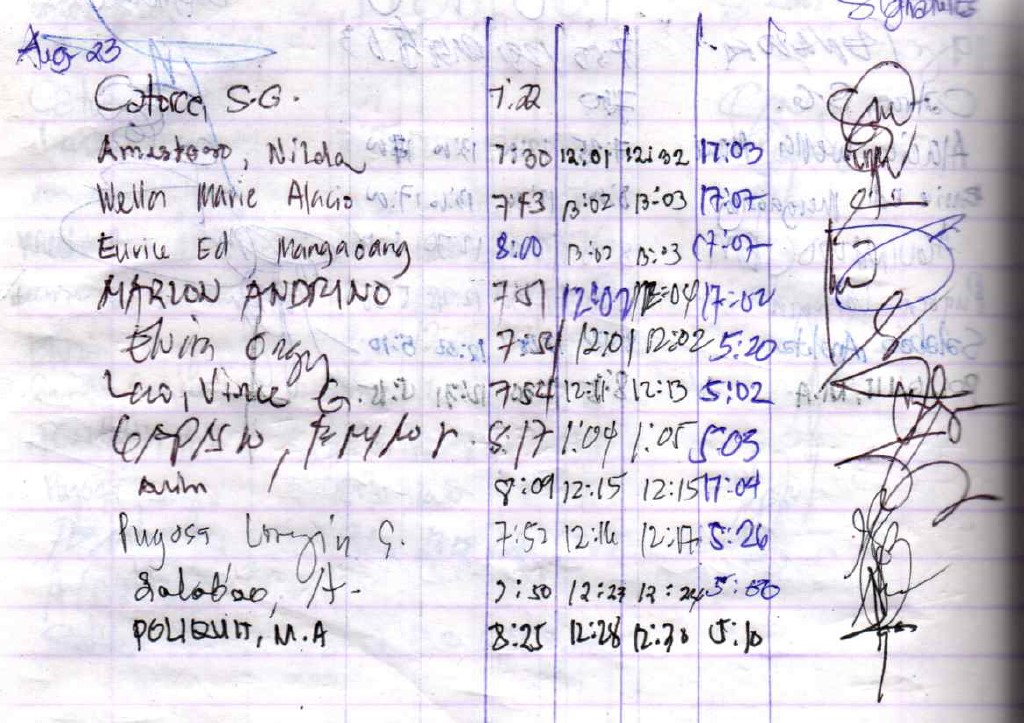 Signature
Aug 23
Catorce, S.G. 7:22
Amestoso, Nilda 7:30 12:01 12:32 17:03
Wella Marie Alacio 7:43 13:02 13:03 17:07
Eurice Ed Mangaoang 8:00 13:02 13:03 17:07
MARLON ANDRINO 7:51 12:02 12:04 17:02
Elvira 7:52 12:01 12:02 5:20
Lao, Vince G. 7:54 12:11 12:13 5:02
8:17 1:04 1:05 5:03
8:09 12:15 12:15 17:04
Pugosa G. 7:52 12:16 12:17 5:26
Salabao, A- 7:50 12:23 12:24
POLIQUIT, M.A 8:25 12:28 12:30 5:10